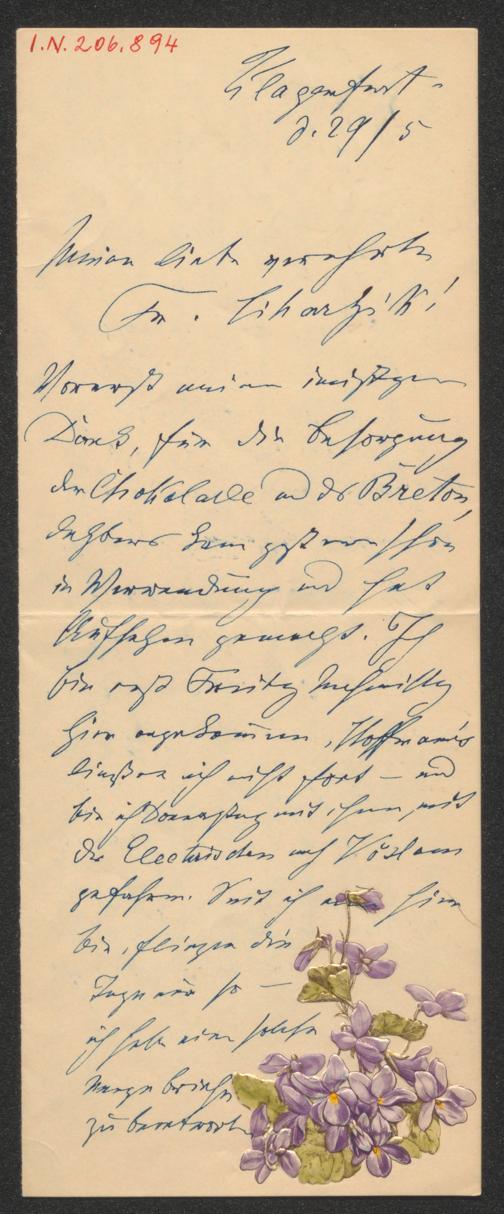 I.N. 206.894
Klagenfurt
d. 29/5
Meine liebe verehrte
Fr. Eiharzik!
Vorerst meinen innigsten
Dank, für die Besorgung
der Chokolade und des Breton,
kam gestern schon
in Verwendung und hat
Aufsehen gemacht. Ich
bin erst Freitag Nachmittag
hier angekommen, Hoffmann's
ließen ich nicht fort – und
bin ich Donnerstag mit ihnen, mit
der Electrischen nach Vöslau
gefahren. Seit ich nun hier
bin, fliegen die
Tage nur so –
ich habe eine solche
Menge Briefe
zu beantworten